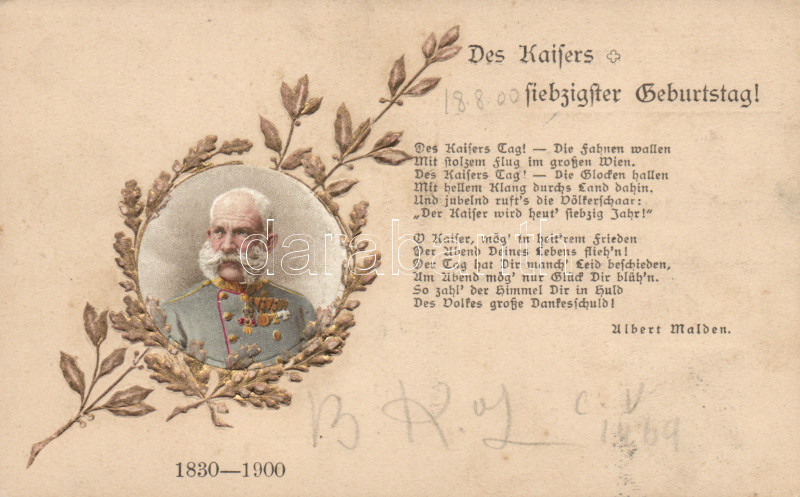 Des Kaisers
18.8.00 siebzigster Geburtstag!
Des Kaisers Tag! — Die Fahnen wallen
Mit stolzem Flug im großen Wien.
Des Kaisers Tag! — Die Glocken hallen
Mit hellem Klang durchs Land dahin.
Und jubelnd ruft's die Völkerschaar:
„Der Kaiser wird heut' siebzig Jahr!"
O Kaiser, mög' in heit'rem Frieden
Der Abend Deines Lebens flieh'n!
Der Tag hat Dir manch' Leid beschieden,
Am Abend mög' nur Glück Dir blüh'n.
So zahl' der Himmel Dir in Huld
Des Volkes große Dankesschuld!
Albert Malden.
darabanth
1830—1900